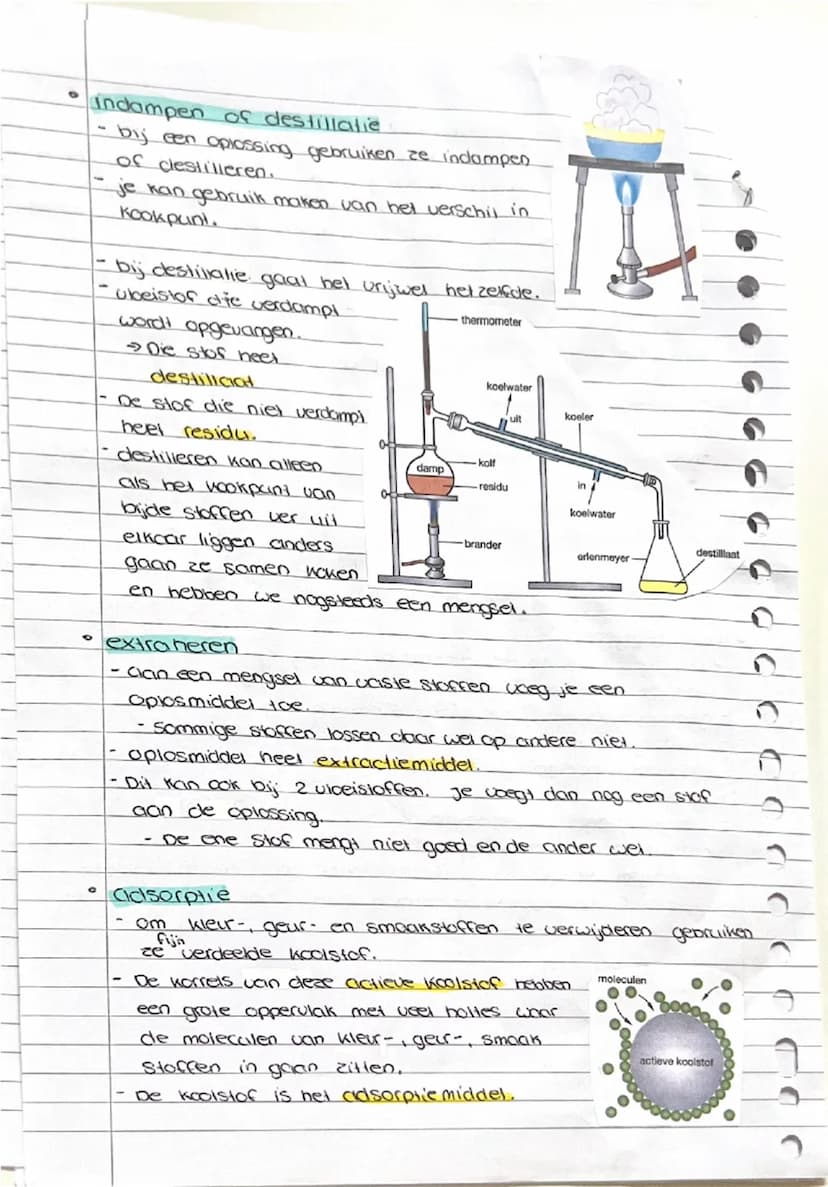 • indampen of destillatie
- bij een oplossing gebruiken ze indampen
of destilleren.
- je kan gebruik maken van het verschil in
kookpunt.
- bij destillatie gaat het vrijwel hetzelfde.
- vloeistof die verdampt
wordt opgevangen.
→ Die stof heet
destillaat
- De stof die niet verdampt
heet residu.
- destilleren kan alleen
als het kookpunt van
bijde stoffen ver uit
elkaar liggen anders
gaan ze samen koken
en hebben we nogsteeds een mengsel.
thermometer
koelwater
uit
koeler
damp
kolf
residu
in
koelwater
brander
erlenmeyer
destillaat
• extraheren
- Aan een mengsel van vaste stoffen voeg je een
oplosmiddel toe.
- Sommige stoffen lossen daar wel op andere niet.
- oplosmiddel heet extractiemiddel.
- Dit kan ook bij 2 vloeistoffen. Je voegt dan nog een stof
aan de oplossing.
- De ene stof mengt niet goed en de ander wel.
• adsorptie
- om kleur-, geur- en smaakstoffen te verwijderen gebruiken
ze fijn verdeelde koolstof.
- De korrels van deze actieve koolstof hebben
een grote oppervlak met veel holtes waar
de moleculen van kleur-, geur-, smaak
stoffen in gaan zitten.
- De koolstof is het adsorptiemiddel.
moleculen
actieve koolstof